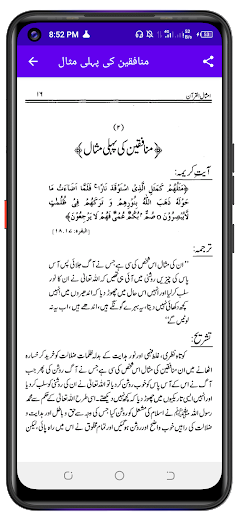 8:52 PM
منافقین کی پہلی مثال
امثال القرآن ۱۹
(۲)
﴿منافقین کی پہلی مثال﴾
آیت کریمہ:
﴿مَثَلُهُمْ كَمَثَلِ الَّذِي اسْتَوْقَدَ نَارًا ۚ فَلَمَّا أَضَاءَتْ مَا
حَوْلَهُ ذَهَبَ اللَّهُ بِنُورِهِمْ وَ تَرَكَهُمْ فِي ظُلُمٰتٍ
لَّا يُبْصِرُونَ o صُمٌّ بُكْمٌ عُمْيٌ فَهُمْ لَا يَرْجِعُونَ﴾
(البقرہ: ۱۷، ۱۸)
ترجمہ:
"ان کی مثال اس شخص کی سی ہے جس نے آگ جلائی پس آس
پاس کی چیزیں روشنی میں آئی ہی تھیں کہ اللہ تعالیٰ نے ان کا نور
سلب کر لیا اور انہیں اس حال میں چھوڑ دیا کہ اندھیروں میں انہیں
کچھ دکھائی نہیں دیتا، یہ بہرے گونگے ہیں، اندھے ہیں، اب یہ نہ
لوٹیں گے"
تشریح:
کوتاہ نظری، غلط فہمی اور نور ہدایت کے بدلہ ظلمات ضلالت کو خرید کر خسارہ
اٹھانے میں ان منافقین کی مثال اس شخص کی سی ہے جس نے آگ روشن کی پھر جب
آگ نے اس کے آس پاس کو خوب روشن کر دیا تو اللہ تعالیٰ نے ان کی روشنی کو سلب کر دیا
اور انہیں ایسی تاریکیوں میں چھوڑ دیا کہ کچھ نہیں دیکھتے۔ اسی طرح اللہ تعالیٰ کے حکم سے محمد
رسول اللہ ﷺ نے اسلام کی مشعل کو روشن کیا جس کی وجہ سے حق و باطل اور ہدایت و
ضلالت کی راہیں خوب واضح اور روشن ہو گئیں اور تمام مخلوق نے اس میں راہ پائی، لیکن